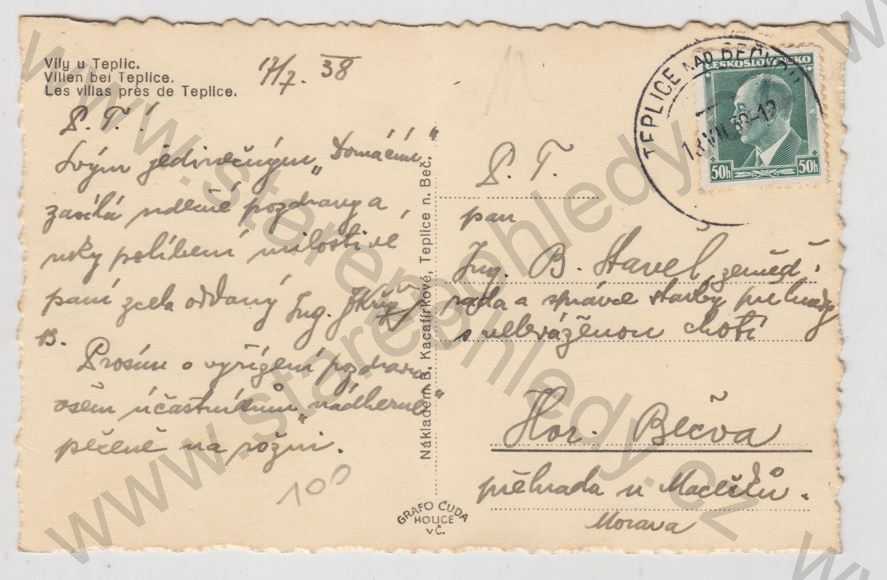 Vily u Teplic.
Villen bei Teplice.
Les villas près de Teplice.
17/7. 38
P. T. !
Svým jedinečným „Domácím“
zasílá vděčné pozdravy a
ruky políbení milostivé
paní zcela oddaný Ing.
B.
Prosím o vyřízení pozdravu
všem účastníkům „nádherné“
pečeně na rožni.
100
Nákladem B. Kacafírkové, Teplice n. Beč.
GRAFO ČUDA
HOLICE
V Č.
TEPLICE NAD BEČVOU
18 VII 38-12
ČESKOSLOVENSKO
50h 50h
P. T.
pan
Ing. B. Stavel, zeměd.
rada a správce stavby přehrady
s veleváženou chotí
Hor. Bečva
přehrada u
Morava
www.starepohledy.cz
www.starepohledy.cz